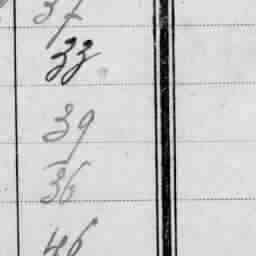 37
33
39
36
46